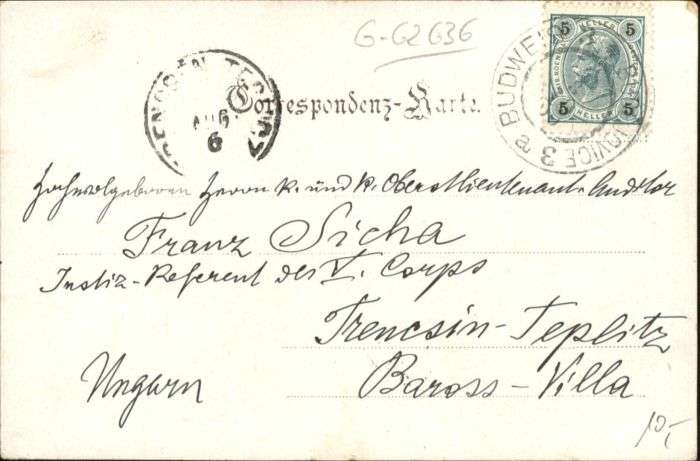 G-G2636
5 HELLER 5
5 HELLER 5
BUDWEIS
3 a
TRENCSÉN TEPLICZ
AUG
6
Correspondenz-Karte.
Hochwolgeboren Herrn k. und k. Oberstlieutenant-Auditor
Franz Sicha
Justiz-Referent des V. Corps
Trencsin-Teplitz
Ungarn
Baross-Villa
10,-